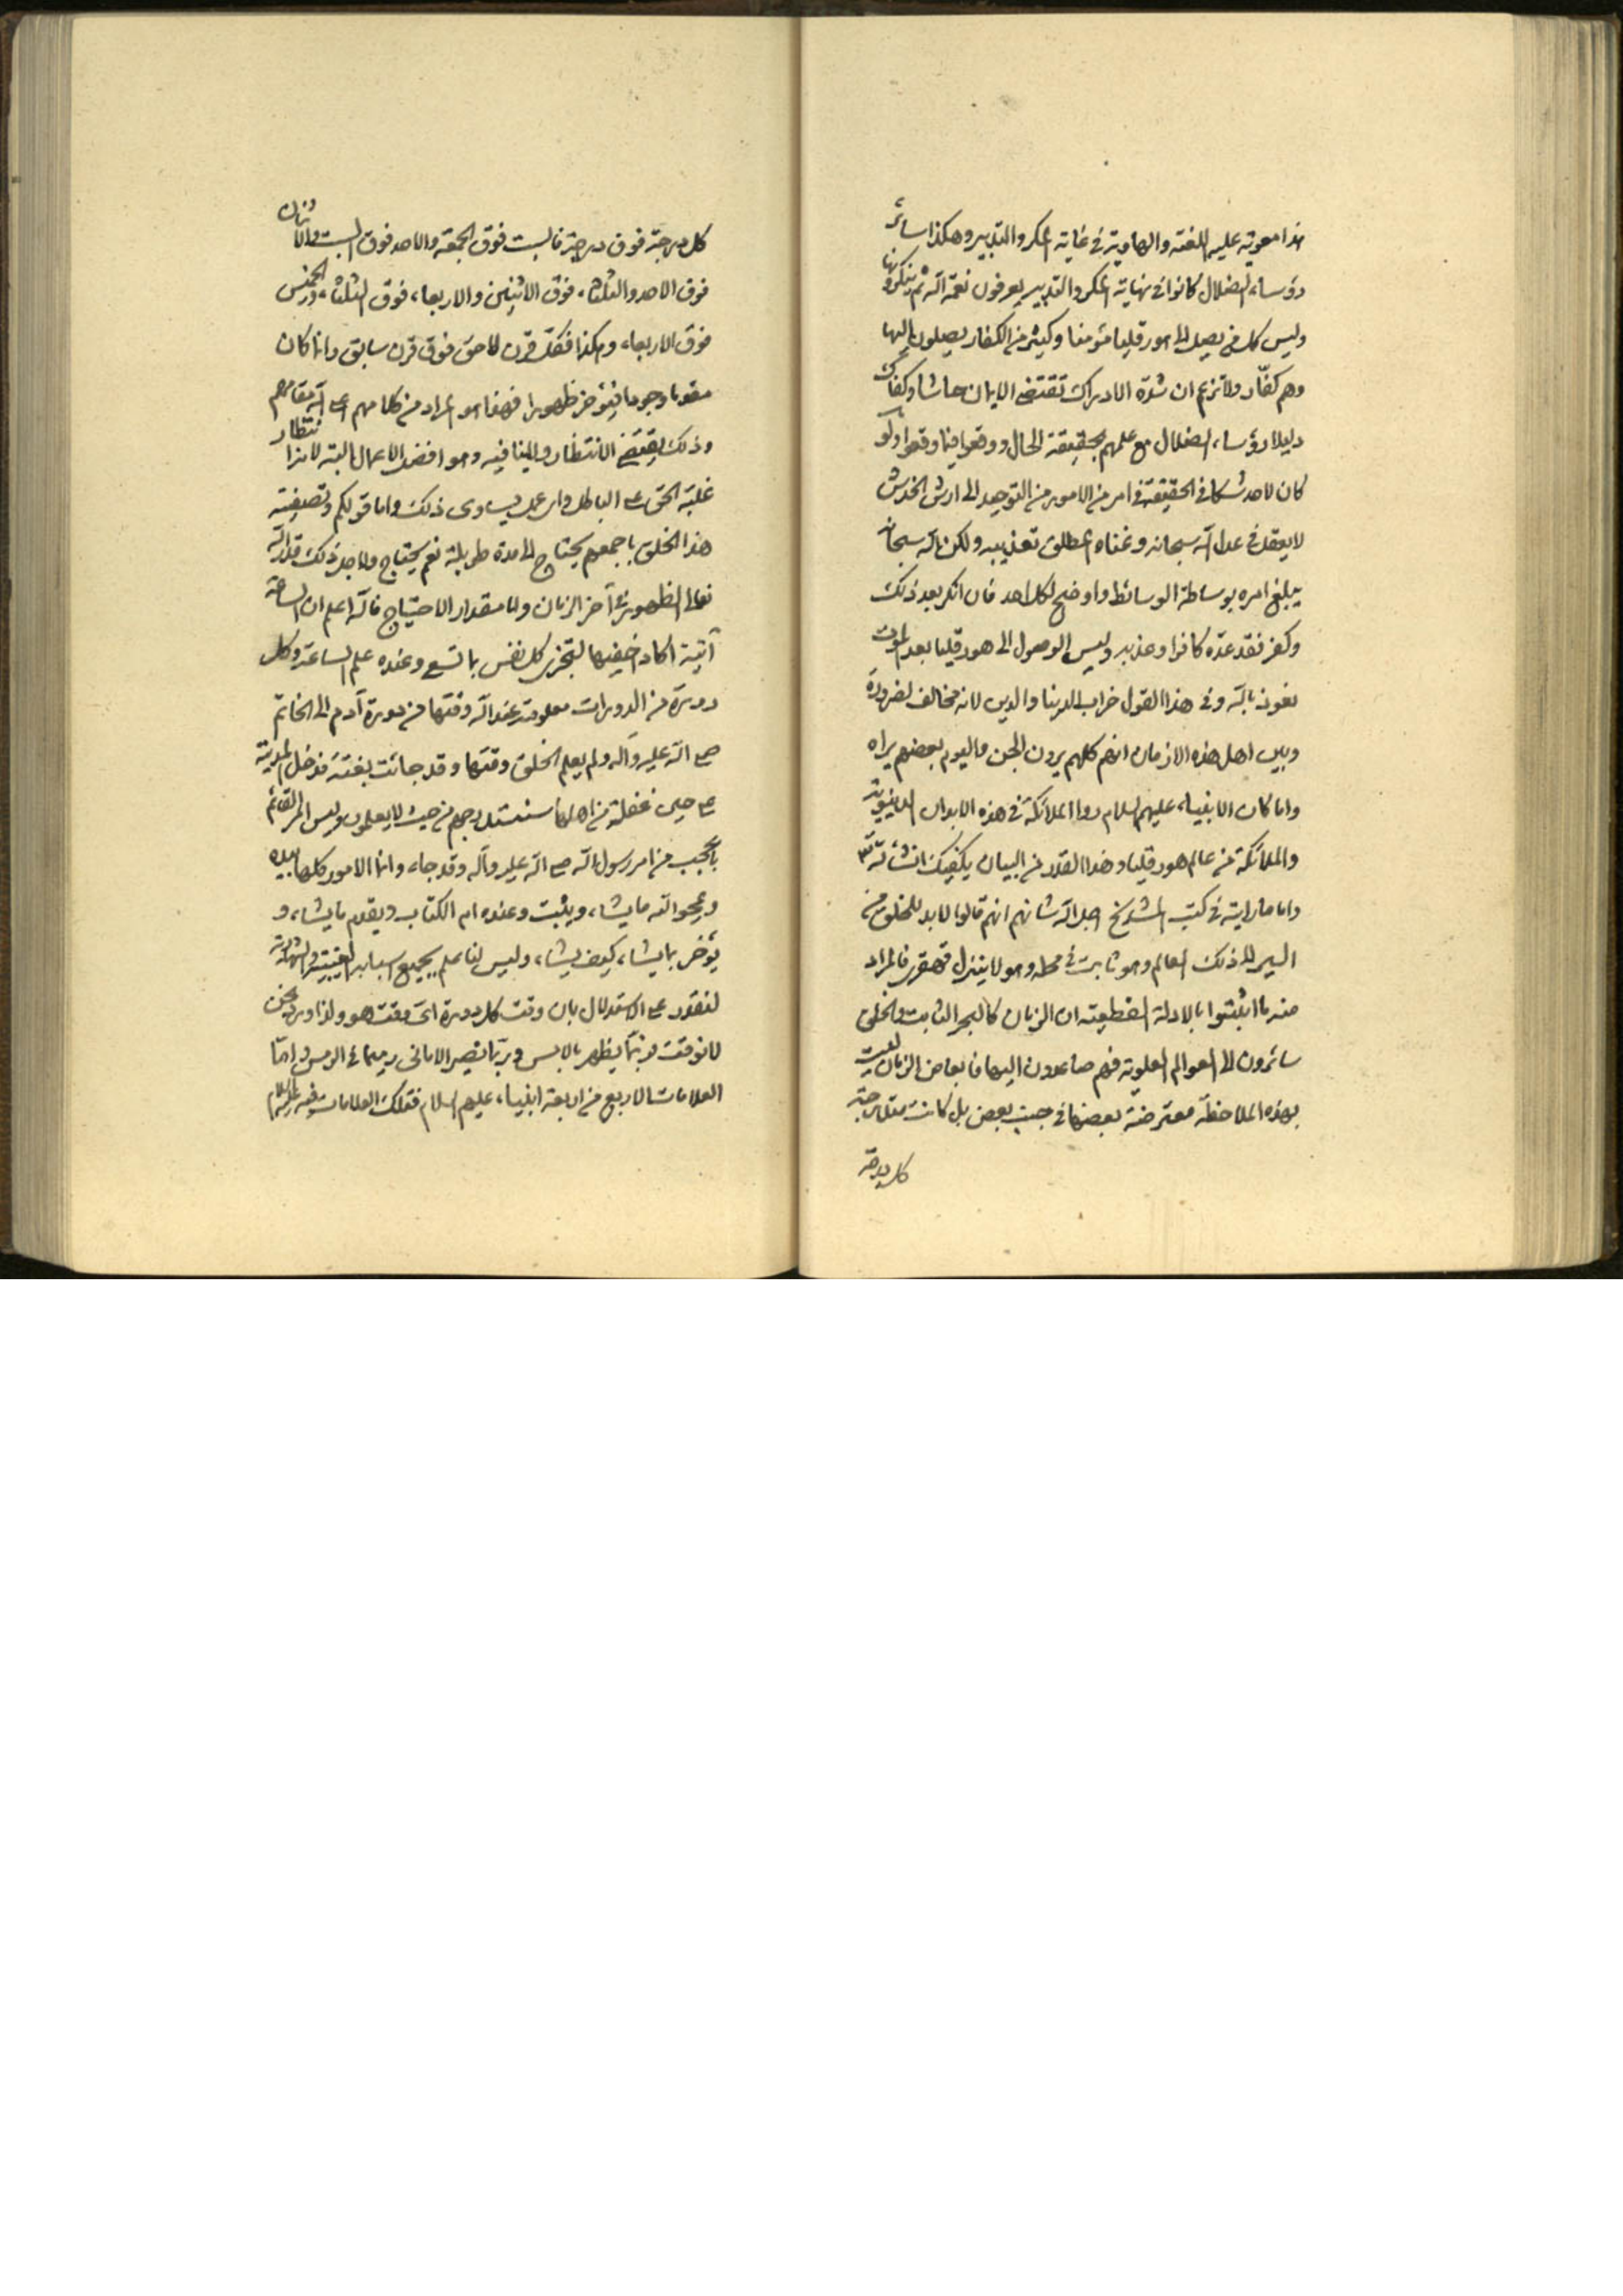 هذا معوية عليه اللغنة والهاوية في غاية المكر والتدبير وهكذا سائر
رؤساء الضلال كانوا في نهاية المكر والتدبير يعرفون نعمة الله ثم ينكرونها
وليس كل من يصل الى هور قليا مؤمنا وكثير من الكفار يصلون اليها
وهم كفّار ولا تزعم ان شدّة الادراك تقتضي الايمان حاشا وكفاك
دليلا رؤساء الضلال مع علمهم بحقيقة الحال ووقعوا فيما وقعوا ولو
كان لاحد شكا في الحقيقة في امر من الامور من التوحيد الى ارش الخدش
لا يعقل في عدل الله سبحانه وغناه المطلق تعذيبه ولكن الله سبحانه
يبلغ امره بوساطة الوسائط واوضح لكل احد فان انكر بعد ذلك
وكفر فقد عدّه كافرا وعذبه وليس الوصول الى هور قليا بعد الموت
نعوذ بالله وفي هذا القول خراب الدنيا والدين لانه مخالف لضرورة
وبين اهل هذه الازمان انهم كلهم يرون الجن واليوم بعضهم يراه
واما كان الانبياء عليهم السلام رأوا الملائكة في هذه الابدان الدنيوية
والملائكة من عالم هور قليا وهذا القدر من البيان يكفيك انشاء الله تع
واما ما رايته في كتب المشايخ اجل الله شانهم انهم قالوا لا بد للخلق من
السير الى ذلك العالم وهو ثابت في محله وهو لا يتنزل قهقرى فالمراد
منه ما اثبتوا بالادلة القطعية ان الزمان كالبحر الثابت والخلق
سائرون الى العوالم العلوية فهم صاعدون اليها فابعاض الزمان ليست
بهذه الملاحظة معترضة بعضها في جنب بعض بل كانت متدرجة
كل درجة
كل درجة فوق درجة فالسبت فوق الجمعة والاحد فوق السبت والاثنان
فوق الاحد والثلثاء فوق الاثنين والاربعاء فوق الثلثاء والخميس
فوق الاربعاء وهكذا فكل قرن لاحق فوق قرن سابق وانما كان
مقدما وجودا فيتؤخر ظهورا فهذا هو المراد من كلامهم اعلى الله مقامهم
وذلك يقتضي الانتظار ولا ينافيه وهو افضل الاعمال البتة لانه انتظار
غلبة الحق على الباطل واي عمل يساوى ذلك واما قولكم وتصفية
هذا الخلق باجمعهم يحتاج الى مدة طويلة نعم يحتاج ولاجل ذلك قدّر الله
تعالى الظهور في آخر الزمان واما مقدار الاحتياج فالله اعلم ان الساعة
آتية اكاد اخفيها لتجزى كل نفس بما تسع وعنده علم الساعة وكل
دورة من الدورات معلومة عند الله وقتها من دورة آدم الى الخاتم
صلى الله عليه وآله ولم يعلم الخلق وقتها وقد جائت بغتة فدخل المدينة
على حين غفلة من اهلها سنستدرجهم من حيث لا يعلمون وليس امر القائم
باعجب من امر رسول الله صلى الله عليه وآله وقد جاء وانما الامور كلها بيده
ويمحو الله ما يشاء ويثبت وعنده ام الكتاب ويقدم ما يشاء و
يؤخر ما يشاء كيف يشاء وليس لنا علم بجميع اسبابه الغيبية والشهادية
لنقدر على الاستدلال بان وقت كل دورة اى وقت هو ولذا ورد نحن
لا نوقت
العلامات الاربع من اربعة انبياء عليهم السلام فتلك العلامات فيه عليه السلام